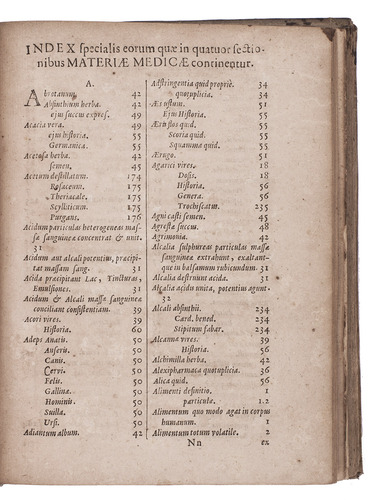 INDEX specialis eorum quæ in quatuor sectio-
nibus MATERIÆ MEDICÆ continentur.
A.
Abrotanum 42
Absinthium herba. 42
ejus succus expres. 49
Acacia vera. 49
ejus historia. 55
Germanica. 55
Acetosa herba. 42
semen. 45
Acetum destillatum. 174
Rosaceum. 175
Theriacale. 175
Scylliticum. 175
Purgans. 176
Acidum particulas heterogeneas mas-
sæ sanguineæ concentrat & unit.
31
Acidum aut alcali potentius, præcipi-
tat massam sang. 31
Acida præcipitant Lac, Tincturas,
Emulsiones. 31
Acidum & Alcali massæ sanguineæ
conciliant consistentiam. 39
Acori vires. 39
Historia. 60
Adeps Anatis. 50
Anseris. 50
Canis. 50
Cervi. 50
Felis. 50
Gallinæ. 50
Hominis. 50
Suilla. 50
Ursi. 50
Adiantum album. 42
Adstringentia quid proprie. 34
quotuplicia. 34
Æs ustum. 51
Ejus Historia. 55
55
Scoria quid. 55
Squamma quid. 55
Ærugo. 51
Agarici vires. 18
Dosis. 18
Historia. 56
Genera. 56
Trochiscatus. 235
Agni casti semen. 45
Agresta succus. 48
Agrimonia. 42
Alcalia sulphureas particulas massæ
sanguineæ extrahunt, exaltant-
que in balsamum rubicundum. 31
Alcalia destruunt acida. 31
Alcalia acidu unita, potentius agunt.
32
Alcali absinthii. 234
Card. bened. 234
Stipitum fabar. 234
Alcanna vires. 39
Historia. 56
Alchimilla herba. 42
Alexipharmaca quotuplicia. 36
Alica quid. 56
Alimenti definitio. 1
particulæ. 1.2
Alimentum quo modo agat in corpus
humanum. 1
Alimentum totum volatile. 2
Nn ex